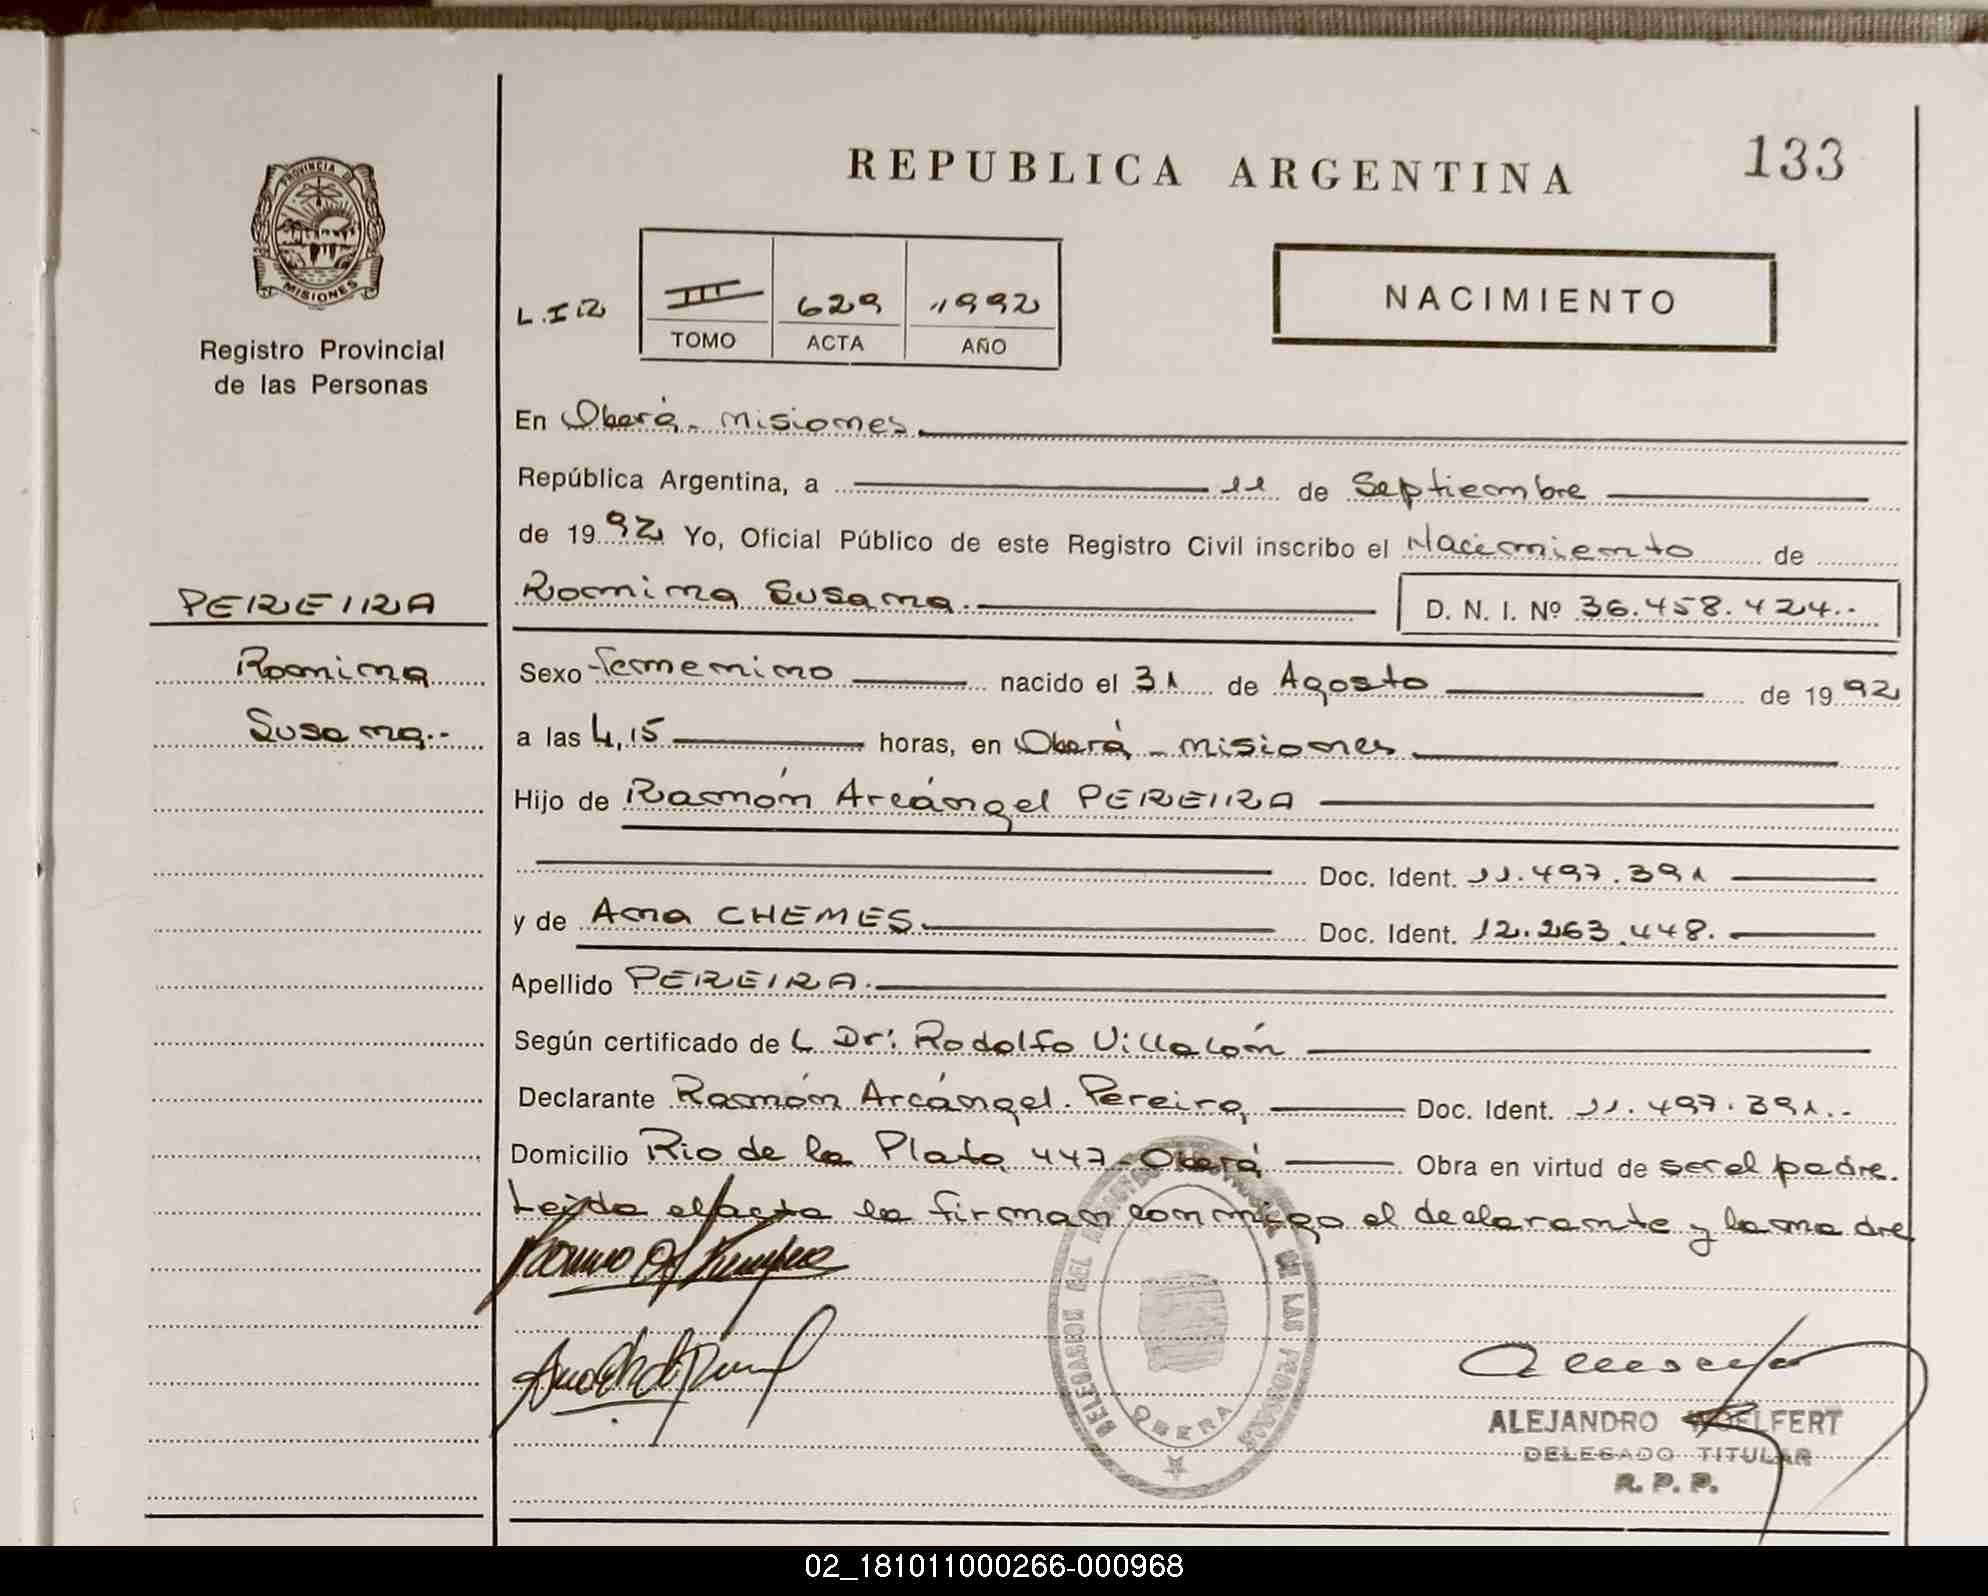 PROVINCIA DE
MISIONES
Registro Provincial
de las Personas
PEREIRA
Romina
Susana.-
REPUBLICA ARGENTINA
133
L.I.R
III 629 1992
TOMO ACTA AÑO
NACIMIENTO
En Oberá - Misiones
República Argentina, a 11 de Septiembre
de 1992 Yo, Oficial Público de este Registro Civil inscribo el Nacimiento de
Romina Susana. D. N. I. Nº 36.458.424.-
Sexo femenino nacido el 31 de Agosto de 1992
a las 4,15 horas, en Oberá - Misiones
Hijo de Ramón Arcángel PEREIRA
Doc. Ident. 11.497.391
y de Ana CHEMES. Doc. Ident. 12.263.448.
Apellido PEREIRA.
Según certificado de L Dr: Rodolfo Villalón
Declarante Ramón Arcángel Pereira, Doc. Ident. 11.497.391.-
Domicilio Rio de la Plata 447 - Oberá Obra en virtud de ser el padre.
Leída el acta la firman conmigo el declarante y la madre
DELEGACION DEL REGISTRO PROVINCIAL DE LAS PERSONAS
OBERA
ALEJANDRO WOELFERT
DELEGADO TITULAR
R. P. P.
02_181011000266-000968